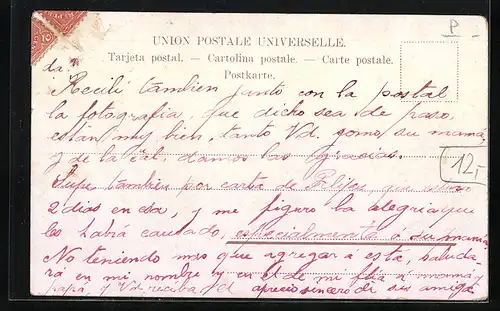 P
UNION POSTALE UNIVERSELLE.
Tarjeta postal. — Cartolina postale. — Carte postale.
Postkarte.
da.
Recibí tambien junto con la postal
la fotografia, que dicho sea de paso,
están muy bien, tanto Vd. como su mamá,
y de la cual, damos las gracias.
12,-
Supe tambien por carta de que
2 dias en esa, y me figuro la alegria que
les habrá causado, especialmente á su mamá
No teniendo mas que agregar á esta, saluda-
rá en mi nombre y en el de mi flia á mamá y
papá, y Vd. reciba el aprecio sincero de su amiga